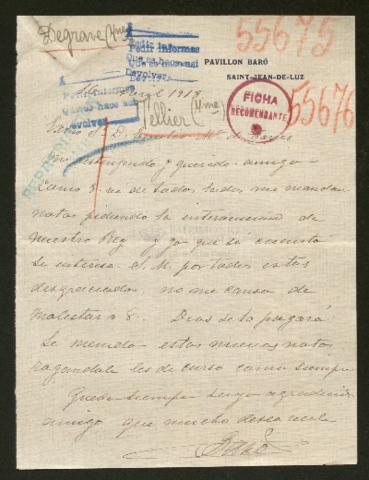 Degrave (Mme)
55675
Pedir informes
Devolver
PAVILLON BARÓ
SAINT-JEAN-DE-LUZ
1918
Pedir informes
Devolver
Tellier (Mme)
FICHA
RECOMENDANTE
55676
Mi distinguido y querido amigo
Como S. de todos lados me mandan
notas pidiendo la intervención de
nuestro Rey y yo que se cuanto
se interesa S. M. por todos estos
desgraciados no me canso de
molestar a S. Dios se lo pagará
Le mando estas nuevas notas
rogandole les de curso como siempre
Queda siempre suyo agradecido
amigo que mucho desea verle
Baró